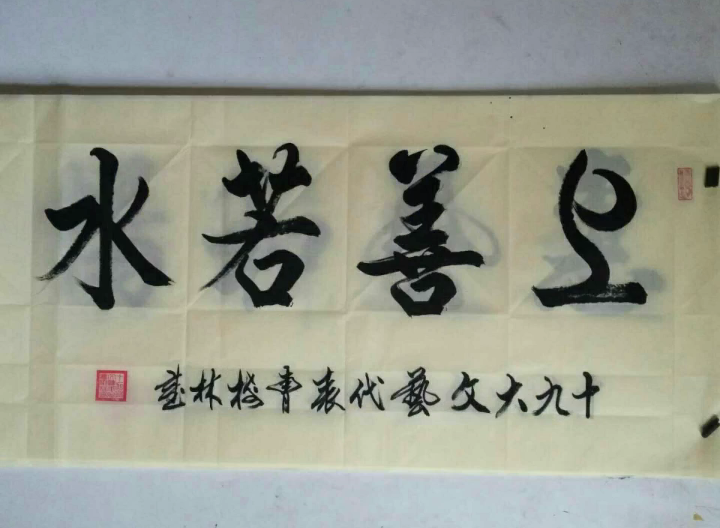 上善若水
十九大文藝代表曹栓林書